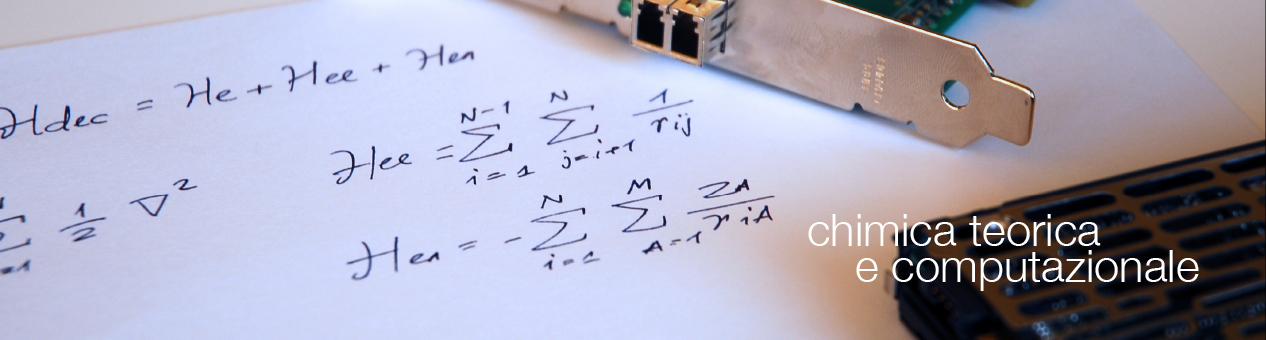 Hdec = He + Hee + Hen
Hee = N-1 Σ i=1 N Σ j=i+1 1/rij
Σ 1/2 ∇²
Hen = - N Σ i=1 M Σ A=1 ZA/riA
chimica teorica
e computazionale